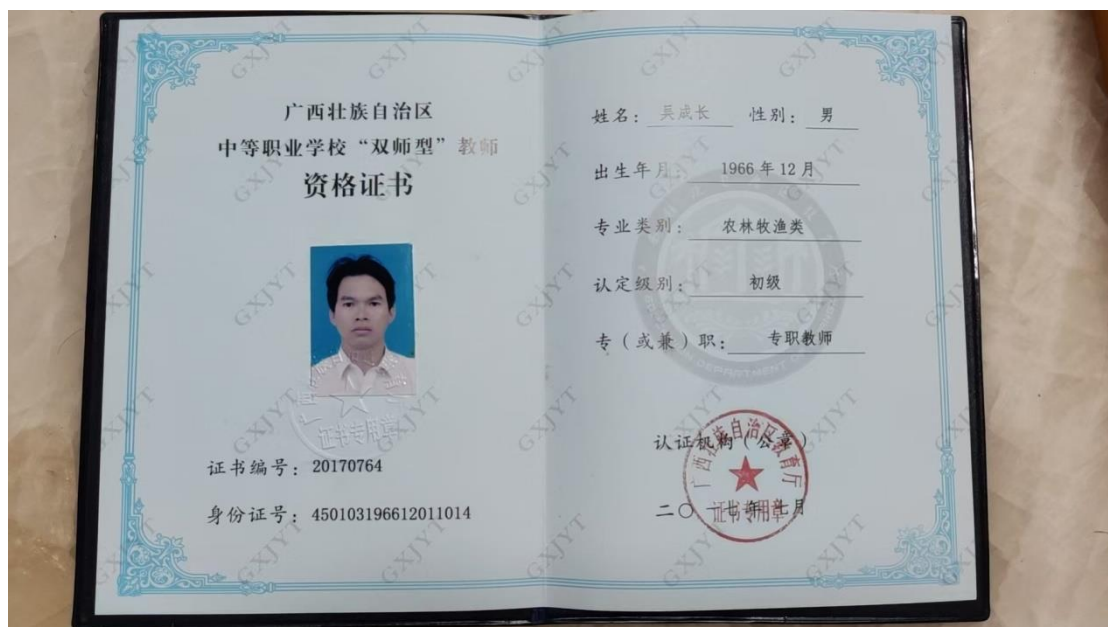 广西壮族自治区
中等职业学校“双师型”教师
资格证书
证书专用章
证书编号：20170764
身份证号：450103196612011014
姓名：吴成长 性别：男
出生年月：1966年12月
专业类别：农林牧渔类
认定级别：初级
专（或兼）职：专职教师
认证机构（公章）
广西壮族自治区教育厅
证书专用章
二〇一七年七月
GXJYT